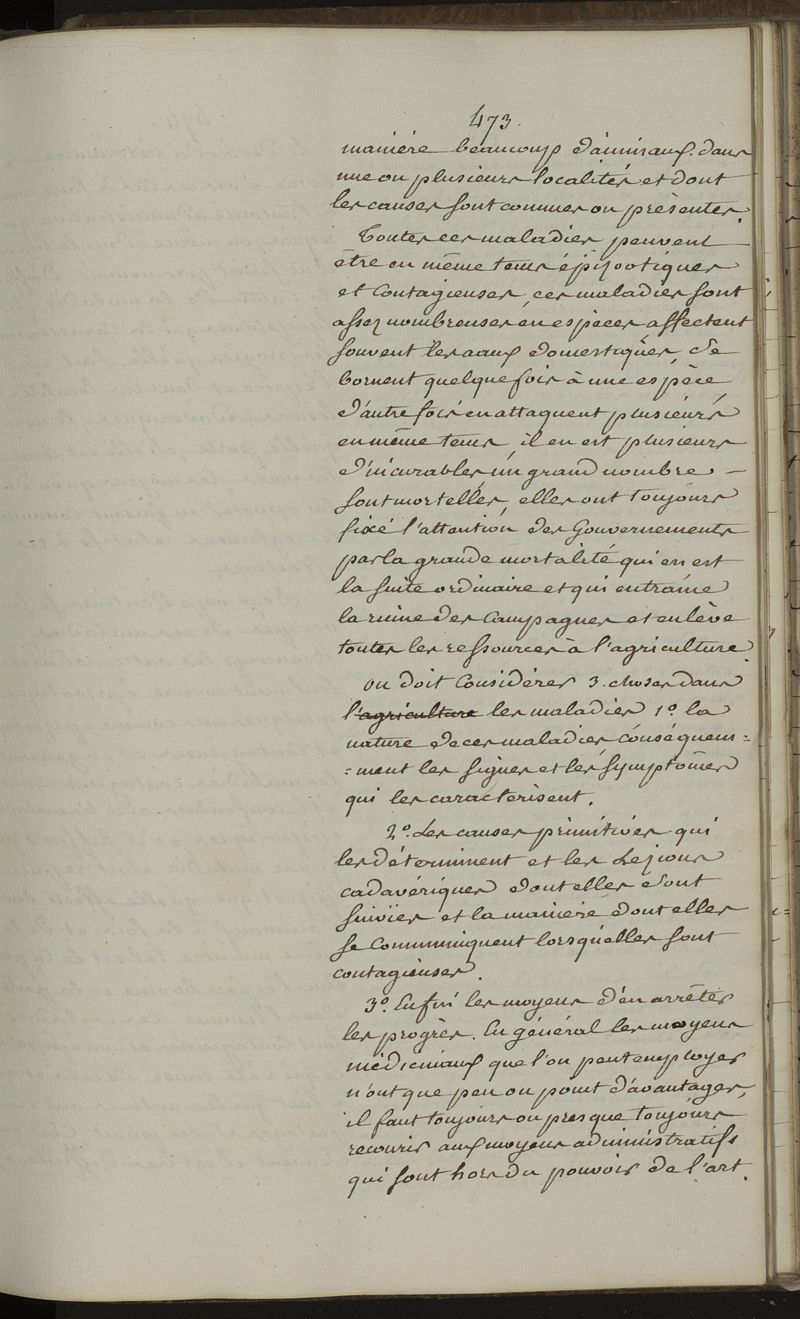 473.
manière beaucoup d'animaux dans
une ou plusieurs localités et dont
les causes sont connues ou présentes.
Toutes ces maladies peuvent
être en même tems épizootiques
et Contagieuses, ces maladies sont
assez nombreuses en espèces affectent
souvent les aaux domestiques, se
bornent quelque fois à une espèce
d'autre fois en attaquent plusieurs
en même tems, il en est plusieurs
d'incurables un grand nombre –
sont mortelles, elles ont toujours
fixé l'attention des Gouvernements
par la grande mortalité qui en est
la suite ordinaire et qui entraine
la ruine des Campagnes et enlève
toutes les ressources à l'agriculture
on doit Considérer 3. choses dans
l'agriculture les maladies 1º. la
nature de ces maladies conséquem=
=ment les signes et les symptômes
qui les caractérisent.
2º. Les causes primitives qui
les déterminent et les Lézions
cadavériques dont elles sont
suivies et la manière dont elles
se Communiquent lorsqu'elles sont
contagieuses.
3º. Enfin les moyens d'en arrêter
les progrès. En général les moyens
médicinaux que l'on peut employer
n'ont que peu ou point d'avantages,
il faut toujours ou presque toujours
recourir aux moyens administratifs
qui sont hors du pouvoir de l'art.